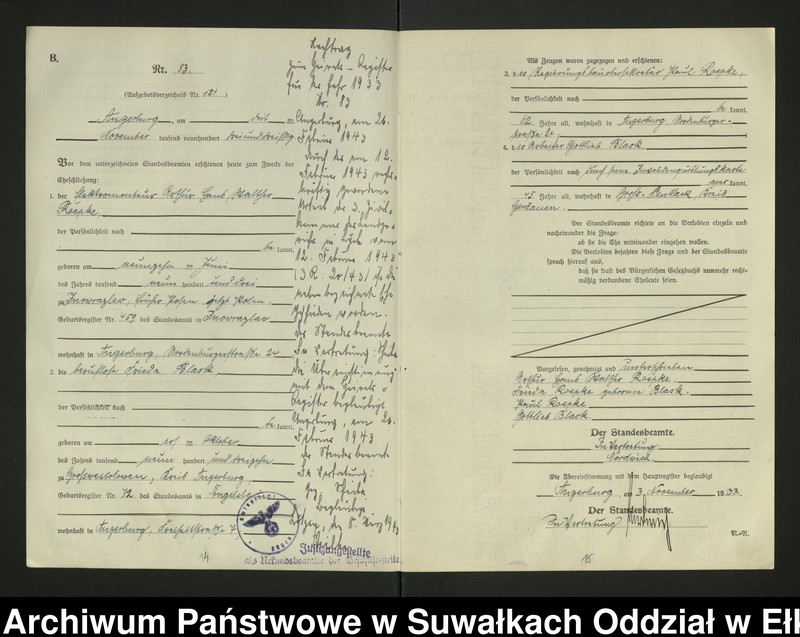 B.
Nr. 83.
(Aufgebotsverzeichnis Nr. 121)
Angerburg, am drei ten
November tausend neunhundert dreiunddreißig
Vor dem unterzeichneten Standesbeamten erschienen heute zum Zwecke der
Eheschließung:
1. der Elektromonteur Arthur Hans Walther
Roepke,
der Persönlichkeit nach
be kannt,
geboren am neunzehn ten Juni
des Jahres tausend neun hundert und drei
in Inowrazlaw, früher Posen jetzt Polen.
Geburtsregister Nr. 459 des Standesamts in Inowrazlaw
wohnhaft in Angerburg, Nordenburgerstraße 24
2. die berufslose Frieda Blask
der Persönlichkeit nach
be kannt,
geboren am ten Oktober
des Jahres tausend neun hundert und dreizehn
Angerburg.
Geburtsregister Nr. 72 des Standesamts in Engelstein
wohnhaft in Angerburg, 7
14
Nachtrag
zum Heirats-Register
für das Jahr 1933
Nr. 83
Angerburg, am 26.
Februar 1943
Durch das am 12.
Februar 1943 rechts-
kräftig gewordene
Urteil der 3. Zivil-
kammer des Landge-
richts in Lyck vom
12. Februar 1943
(3 R. 20/43) ist die
nebenbezeichnete Ehe
geschieden worden.
Der Standesbeamte
In Vertretung:
Die Übereinstimmung
mit dem Heirats-
Register beglaubigt
Angerburg, am 26.
Februar 1943
Der Standesbeamte
In Vertretung:
gez.
Beglaubigt
den 8. März 1943
Justizangestellte
als Urkundsbeamter der Geschäftsstelle
Als Zeugen waren zugezogen und erschienen:
3. der Regierungsbauobersekretär Paul Roepke,
der Persönlichkeit nach
be kannt,
62 Jahre alt, wohnhaft in Angerburg, Nordenburger-
straße 24.
4. der Arbeiter Gottlieb Blask
der Persönlichkeit nach durch seine Invalidenquittungskarte
aner kannt,
45 Jahre alt, wohnhaft in Kreis
Gerdauen.
Der Standesbeamte richtete an die Verlobten einzeln und
nacheinander die Frage:
ob sie die Ehe miteinander eingehen wollen.
Die Verlobten bejahten diese Frage und der Standesbeamte
sprach hierauf aus,
daß sie kraft des Bürgerlichen Gesetzbuchs nunmehr recht-
mäßig verbundene Eheleute seien.
Vorgelesen, genehmigt und unterschrieben
Arthur Hans Walther Roepke.
Frieda Roepke geborene Blask.
Paul Roepke
Gottlieb Blask.
Der Standesbeamte.
In Vertretung
Nordwich
Die Übereinstimmung mit dem Hauptregister beglaubigt
Angerburg, am 3. November 1933.
Der Standesbeamte.
In Vertretung
15
Archiwum Państwowe w Suwałkach Oddział w Ełk